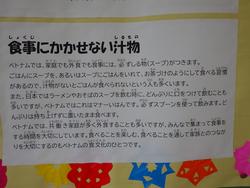 しょくじ しるもの
食事にかかせない汁物
ベトナムでは、家庭でも外食でも食事には、必ずしる物(スープ)がつきます。
ごはんにスープを、あるいはスープにごはんをいれて、お茶づけのようにして食べる習慣
があるので、汁物がないとごはんが食べられないという人も多くいます。
また、日本ではラーメンやおそばのスープを飲む時に、どんぶりに口をつけて飲むことも
多いですが、ベトナムではこれはマナーいはんです。必ずスプーンを使って飲みます。ど
んぶりは持ち上げずに置いたまま食べます。
ベトナムでは、共働き家庭が多く外食することも多いですが、みんなで集まって食事を
する時間を大切にしています。食べることを楽しむ、食べることを通して家族とのつながり
を大切にするのもベトナムの食文化のひとつです。